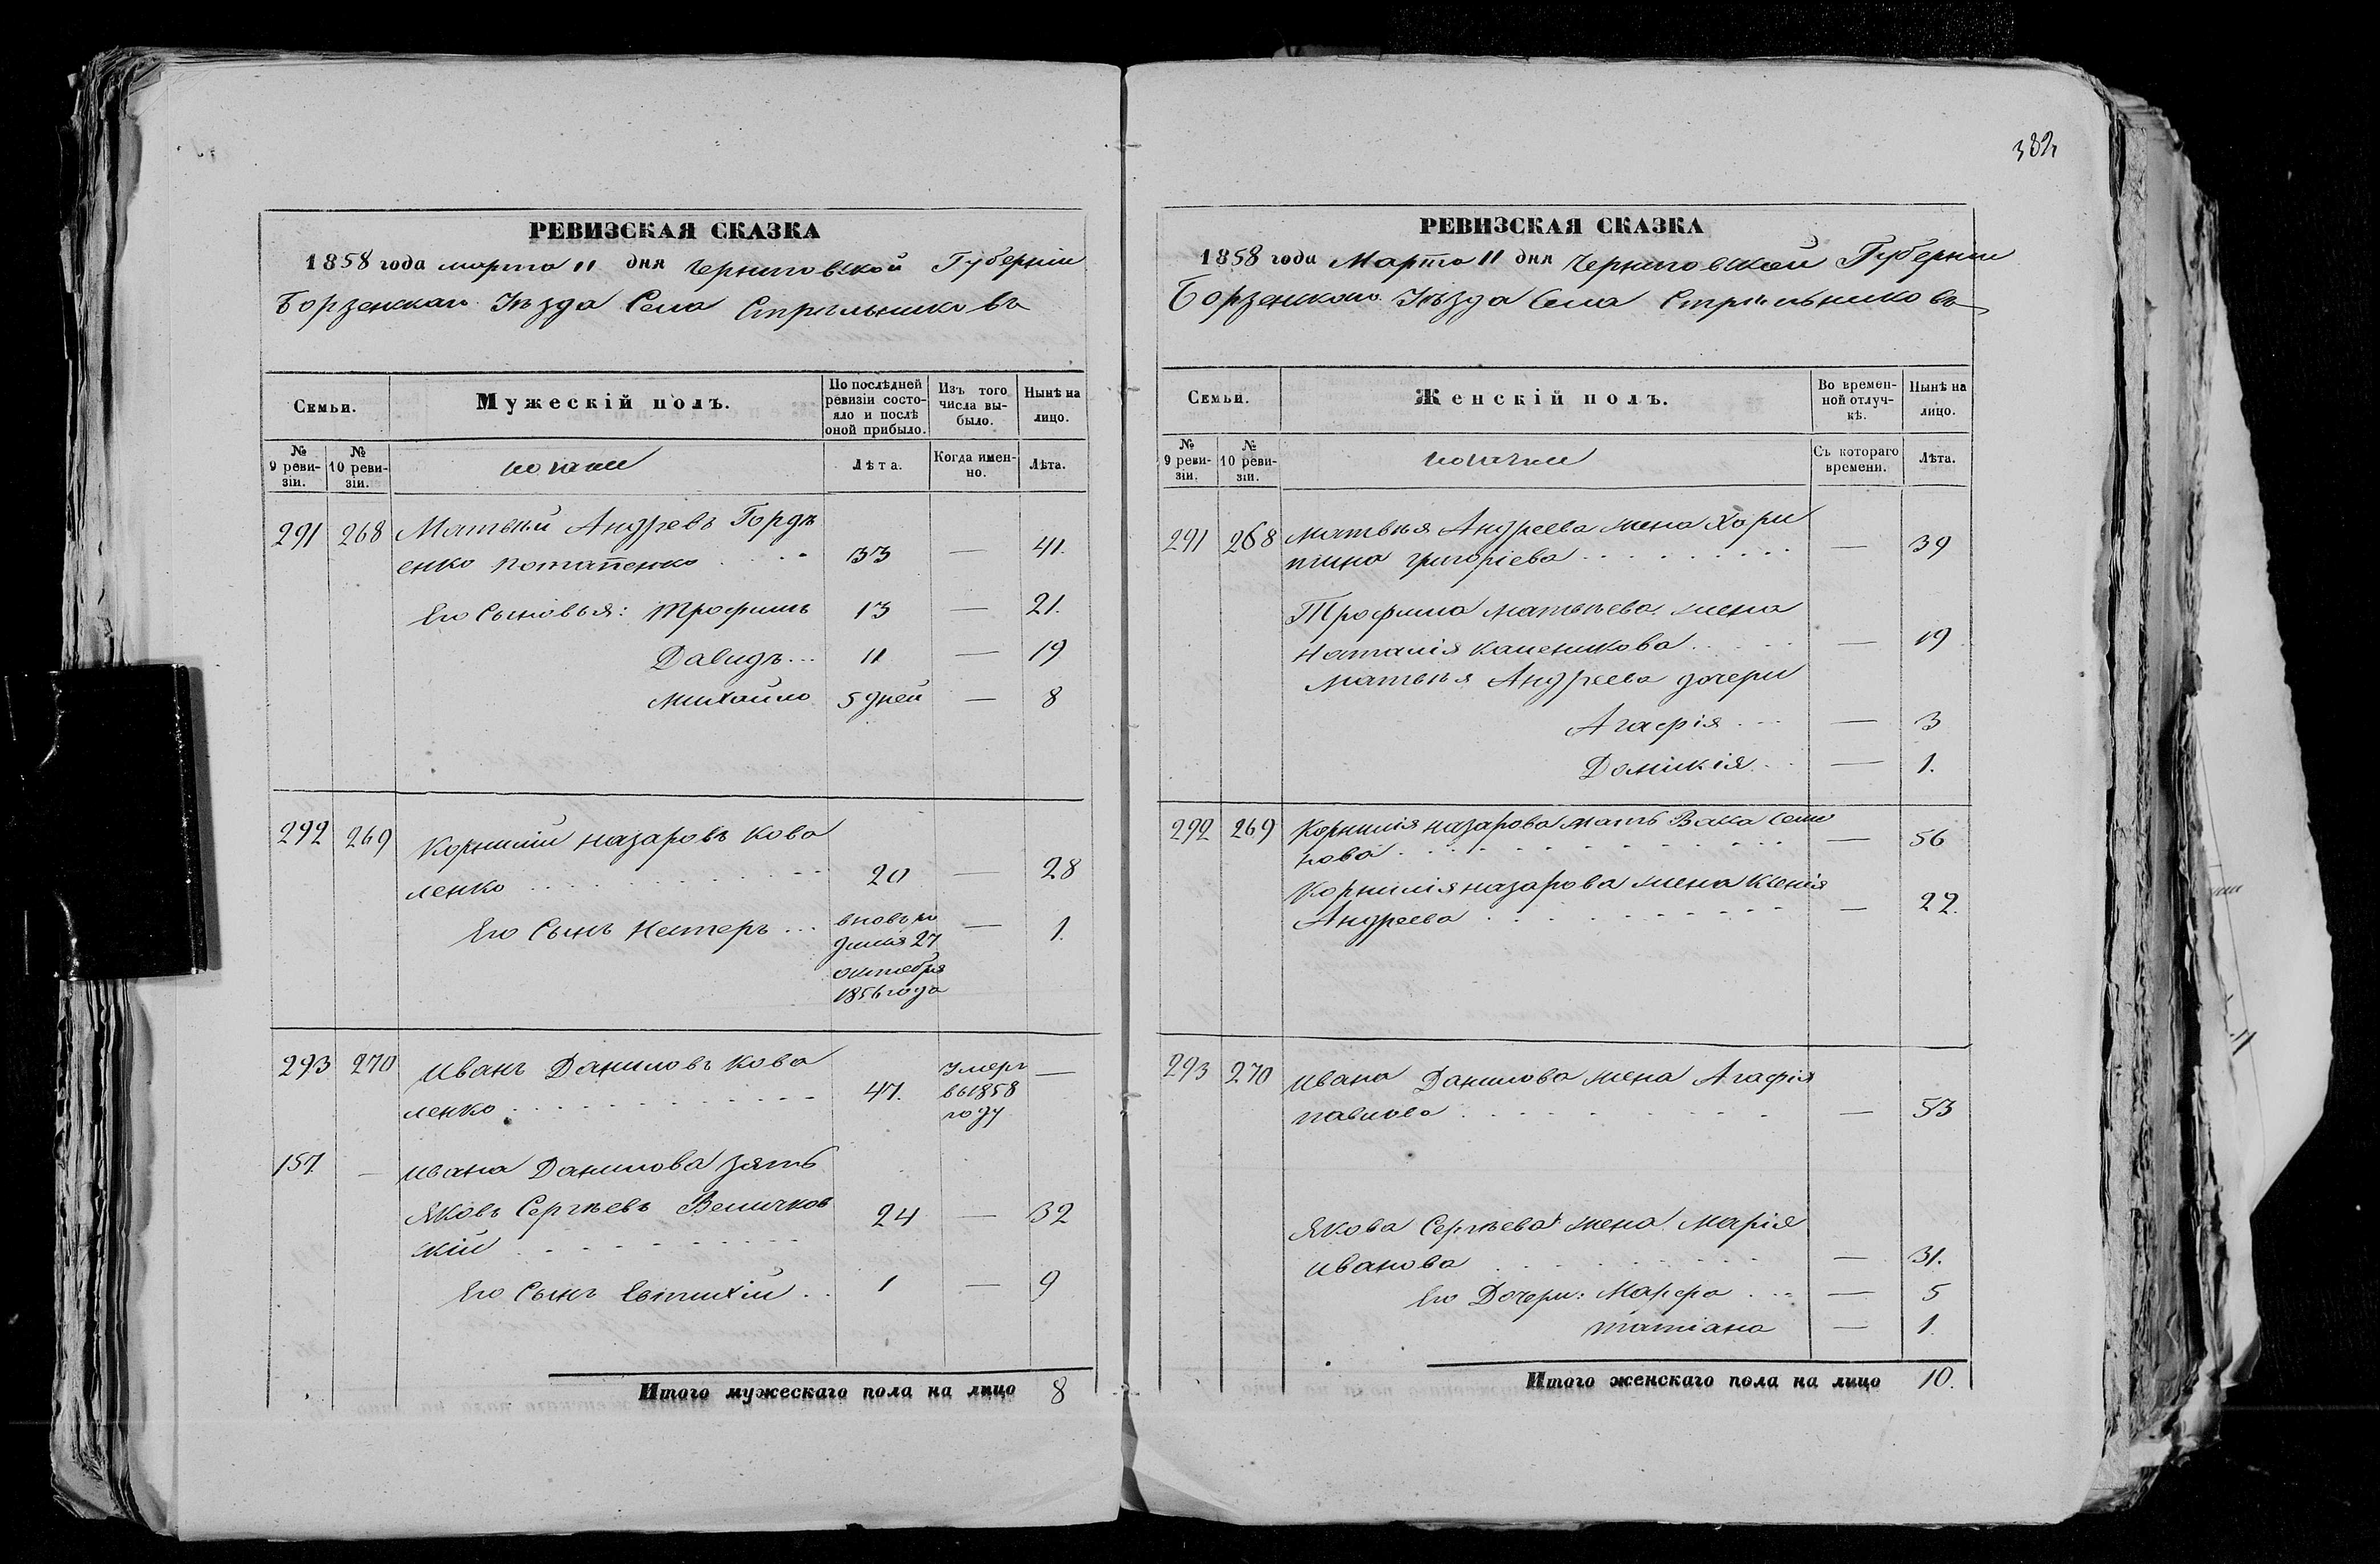 382
РЕВИЗСКАЯ СКАЗКА
1858 года марта 11 дня Черниговской Губерніи
Борзенскаго Уѣзда Села Стрѣльниковъ
Семьи.
Мужескій полъ.
По послѣдней ревизіи состояло и послѣ оной прибыло.
Изъ того числа выбыло.
Ныне на лицо.
№ 9 ревизіи.
№ 10 ревизіи.
козаки
Лѣта.
Когда именно.
Лѣта.
291 268 Матвѣй Андреевъ Гордѣ
енко Потапенко 33 — 41.
Его Сыновья: Трофимъ 13 — 21.
Давидъ... 11 — 19
Михайло 5 дней — 8
292 269 Корнилій Назаровъ Кова
ленко 20 — 28
Его Сынъ Нестеръ ... вновь ро — 1.
дился 27
октября
1856 года
293 270 Иванъ Даниловъ Кова Умеръ —
ленко 47. въ 1858
году
157 — Ивана Данилова зять
Яковъ Сергѣевъ Величков 24 — 32
скій
Его Сынъ Евтихій 1 — 9
Итого мужескаго пола на лицо 8
РЕВИЗСКАЯ СКАЗКА
1858 года Марта 11 дня Черниговской Губерніи
Борзенскаго Уѣзда Села Стрѣльниковъ
Семьи.
Женскій полъ.
Во временной отлучкѣ.
Нынѣ на лицо.
№ 9 ревизіи.
№ 10 ревизіи.
козачки
Съ котораго времени.
Лѣта.
291 268 Матвѣя Андреева жена Хари
тина Григоріева — 39
Трофима Матвѣева жена
Наталія — 19
Матвѣя Андреева дочери
Агафія — 3
Домникія — 1.
292 269 Корнилія Назарова мать — 56
Корнилія Назарова жена Ксенія
Андреева — 22.
293 270 Ивана Данилова жена Агафія
Павлова — 53
Якова Сергѣева жена Марія
Иванова — 31.
Его Дочери: Марфа — 5
Татіана — 1.
Итого женскаго пола на лицо 10.